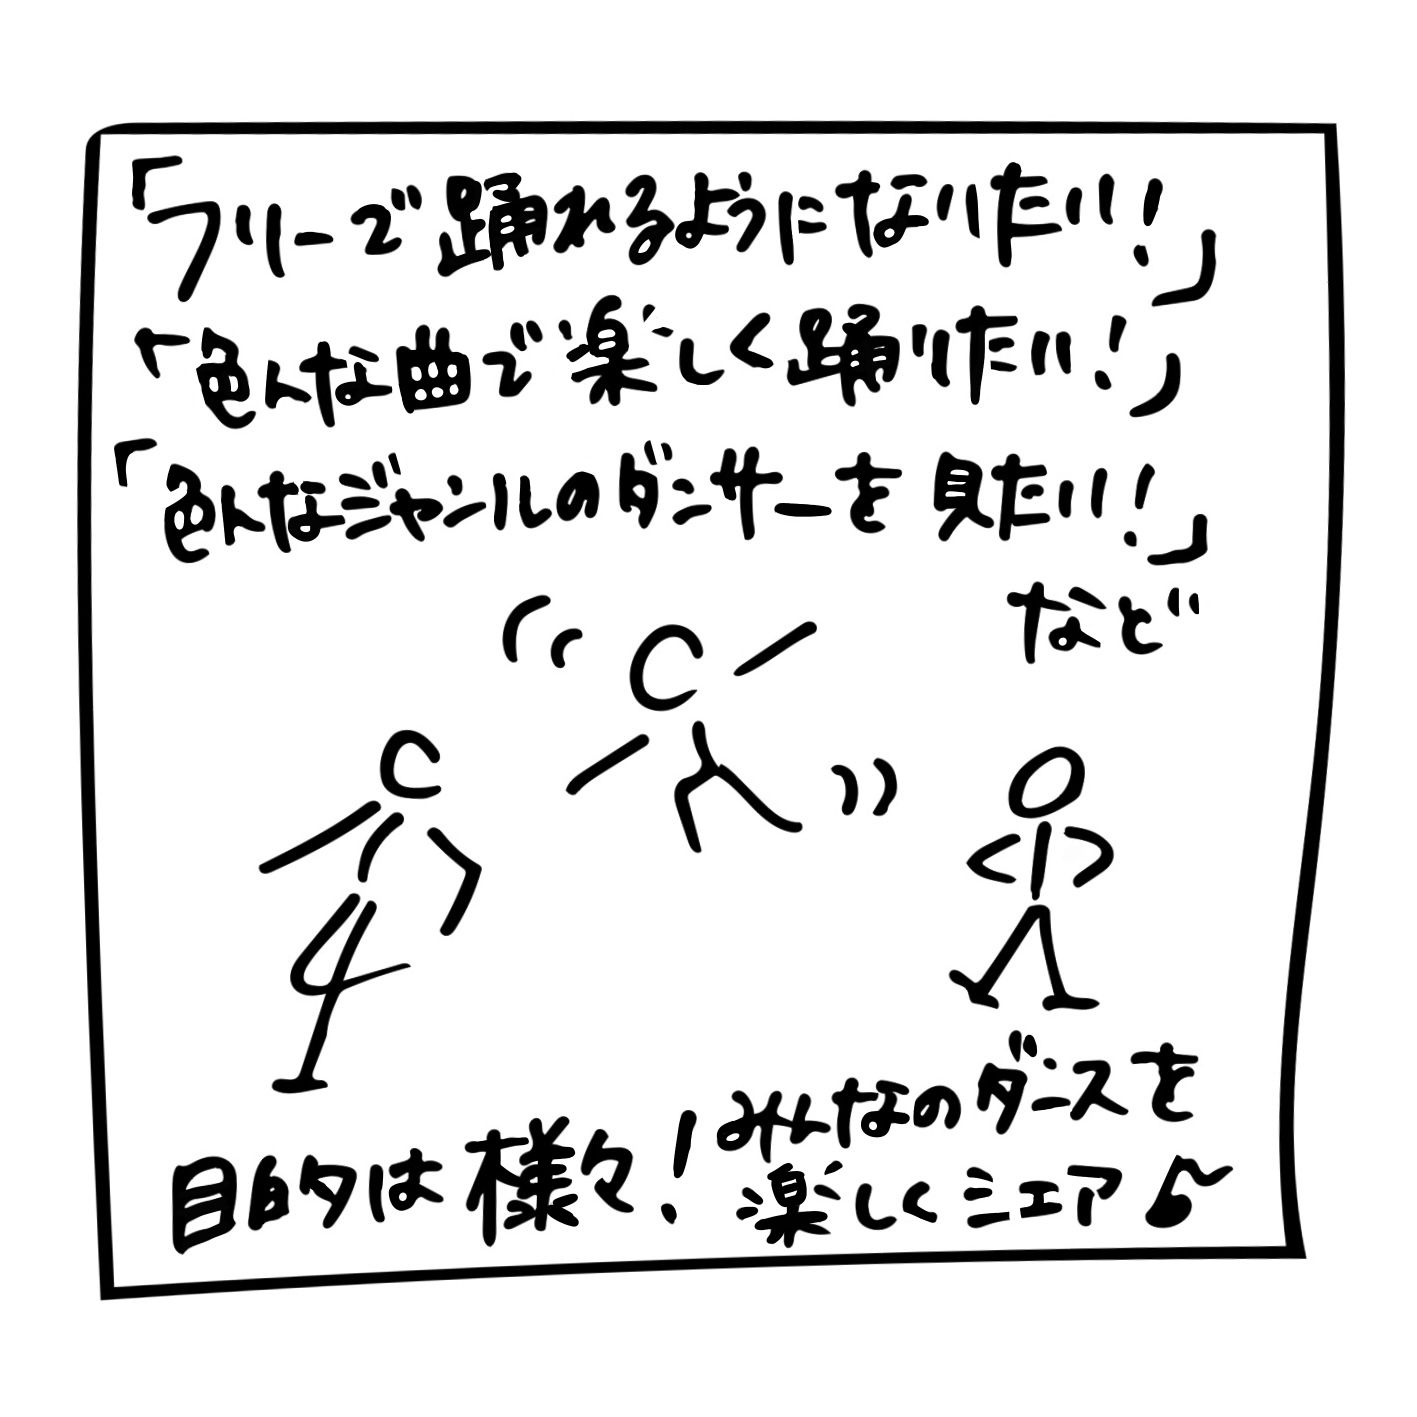 「フリーで踊れるようになりたい！」
「色んな曲で楽しく踊りたい！」
「色んなジャンルのダンサーを見たい！」
など
目的は様々！
みんなのダンスを
楽しくシェア♪